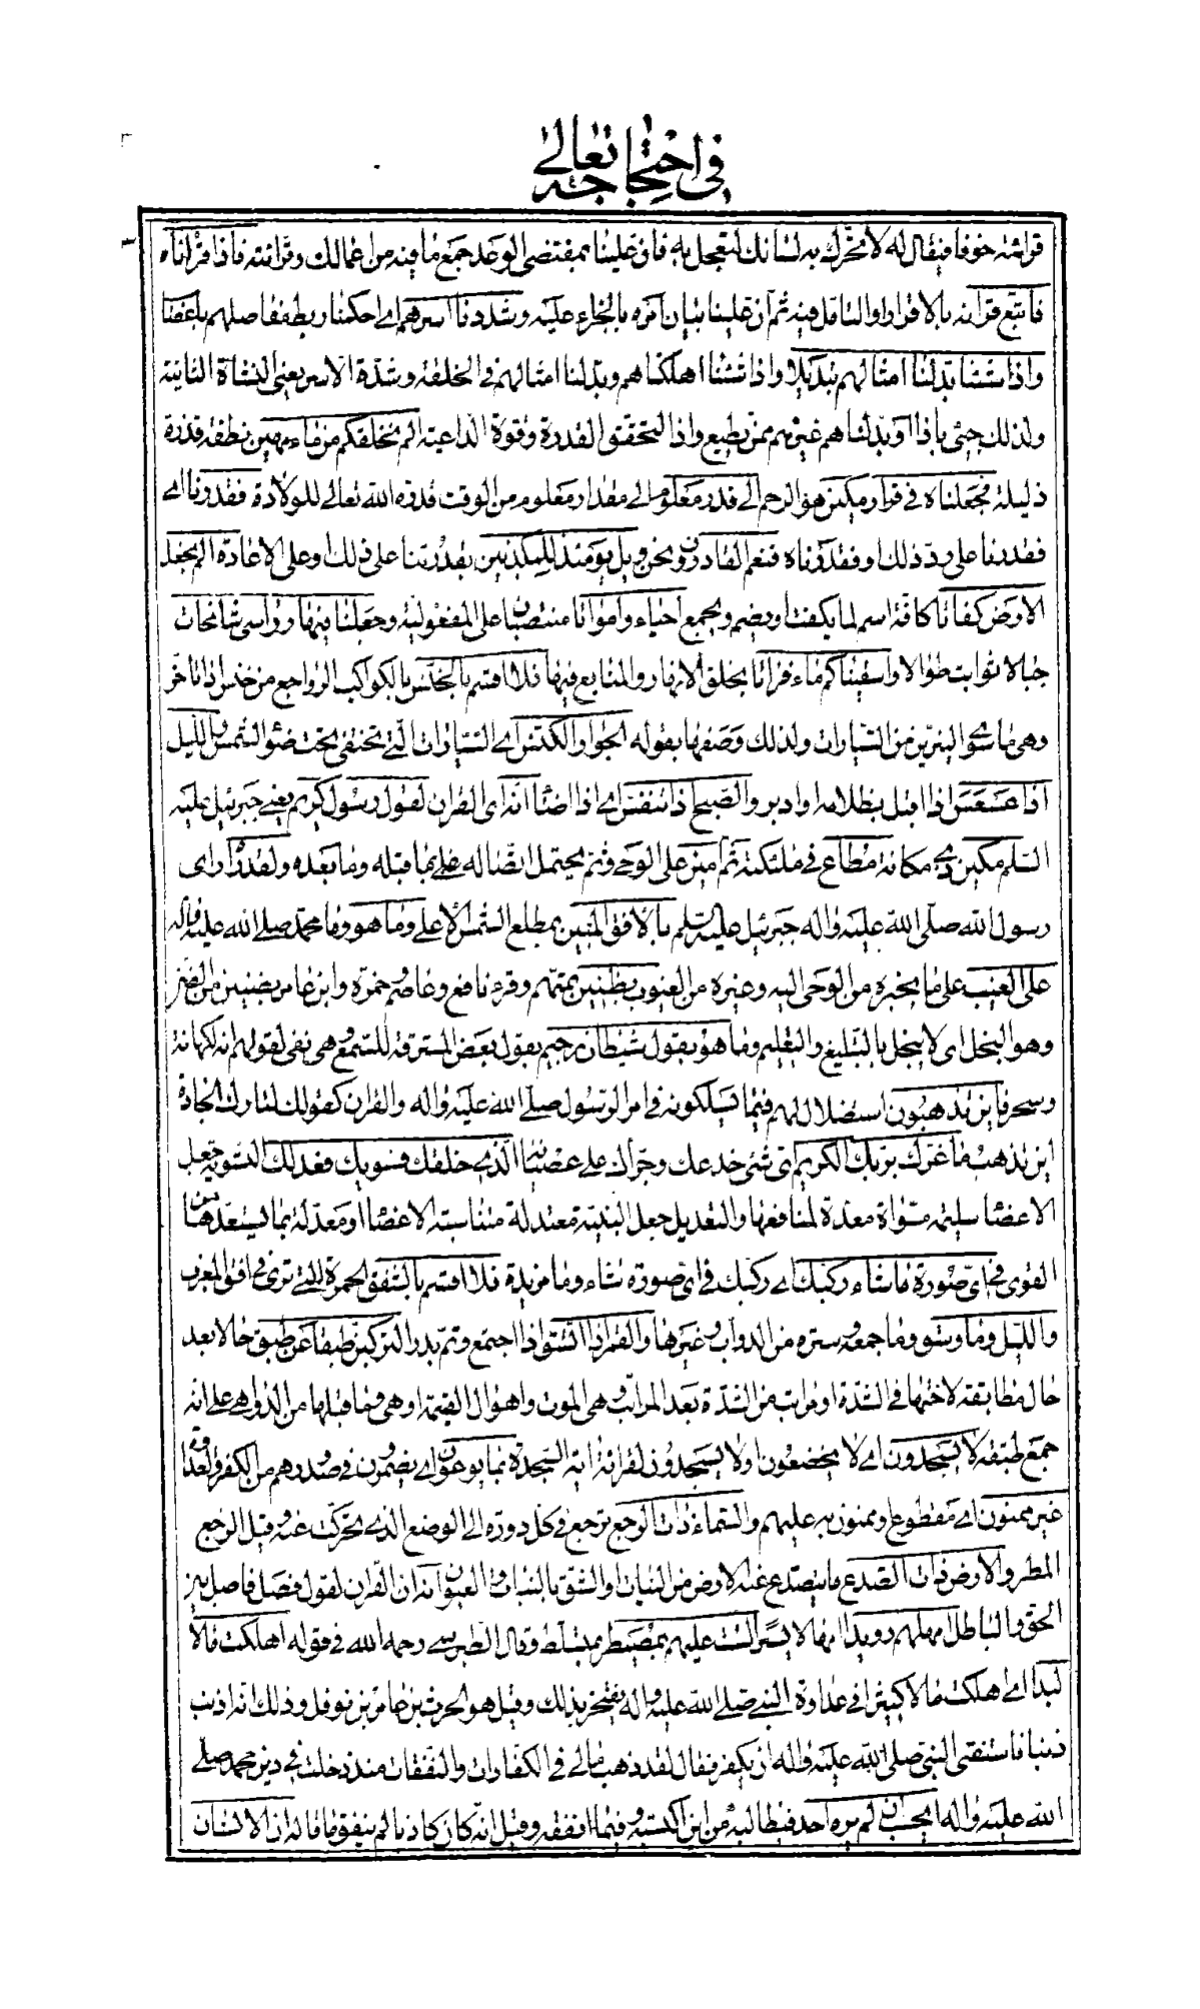 في احتجاجه تعالى
قرائته خوفا فيقال له لا تحرك به لسانك لتعجل به فان علينا بمقتضى الوعد جمع ما فيه من اعمالك وقرائته فاذا قراناه
فاتبع قرانه بالاقرار او التامل فيه ثم ان علينا بيان امره بالجزاء عليه وشددنا اسرهم اي احكمنا ربط مفاصلهم بالاعضا
واذا شئنا بدلنا امثالهم تبديلا واذا شئنا اهلكناهم وبدلنا امثالهم في الخلقة وشدة الاسر يعني النشاة الثانية
ولذلك جئ باذا او بدلنا هم غيرهم ممن يطيع واذا لتحقق القدرة وقوة الداعية الم نخلقكم من ماء مهين نطفة قذرة
ذليلة فجعلناه في قرار مكين هو الرحم الى قدر معلوم الى مقدار معلوم من الوقت قدره الله تعالى للولادة فقدرنا اي
فقدرنا على ذلك او فقدرناه فنعم القادرون نحن ويل يومئذ للمكذبين بقدرتنا على ذلك وعلى الاعادة الم نجعل
الارض كفاتا كافة اسم لما يكفت اي يضم ويجمع احياء وامواتا منتصبان على المفعولية وجعلنا فيها رواسي شامخات
جبالا ثوابت طوالا واسقيناكم ماء فراتا بخلق الانهار والمنابع فيها فلا اقسم بالخنس بالكواكب الرواجع من خنس اذا تاخر
وهي ما سوى النيرين من السيارات ولذلك وصفها بقوله الجوار الكنس اي السيارات التي تختفي تحت ضوء الشمس والليل
اذا عسعس اذا اقبل بظلامه او ادبر والصبح اذا تنفس اي اذا اضئا انه اي القران لقول رسول كريم يعني جبرئيل عليه
السلم مكين ذي مكانة مطاع في ملئكته ثم امين على الوحي وثم يحتمل اتصاله على بما قبله وما بعده ولقد راه راى
رسول الله صلى الله عليه واله جبرئيل عليه السلم بالافق المبين بمطلع الشمس الاعلى وما هو وما محمد صلى الله عليه واله
على الغيب على ما يخبره من الوحي اليه وغيره من الغيوب بظنين بمتهم وقرء نافع وعاصم وحمزة وابن عامر بضنين من الضن
وهو البخل اي لا يبخل بالتبليغ والتعليم وما هو بقول شيطان رجيم بقول بعض المسترقة للسمع وهي نفي لقولهم انه لكهانة
وسحر فاين تذهبون استضلال لهم فيما يسلكونه في امر الرسول صلى الله عليه واله والقران كقولك لتارك الجادة
اين تذهب ما غرك بربك الكريم اي شئ خدعك وجراك على عصيانه الذي خلقك فسويك فعدلك التسوية جعل
الاعضا سليمة مسواة معدة لمنافعها والتعديل جعل البنية معتدلة متناسبة الاعضا او معدلة بما يستعدها من
القوى في اي صورة ما شاء ركبك اي ركبك في اي صورة شاء وما مزيدة فلا اقسم بالشفق الحمرة التي ترى في افق المغرب
والليل وما وسق وما جمعه وستره من الدواب وغيرها والقمر اذا اتسق اذا اجتمع وتم بدرا لتركبن طبقا عن طبق حالا بعد
حال مطابقة لاختها في الشدة او مراتب من الشدة بعد المراتب هي الموت واهوال القيمة او هي وما قبلها من الدواهي على انه
جمع طبقة لا يسجدون اي لا يخضعون او لا يسجدون لقرائة اية السجدة بما يوعون اي يضمرون في صدورهم من الكفر والعداوة
غير ممنون اي مقطوع او ممنون به عليهم والسماء ذات الرجع ترجع في كل دورة الى الوضع الذي تحركت عنه وقيل الرجع
المطر والارض ذات الصدع ما يتصدع عنه الارض من النبات والشق بالنبات والعيون انه ان القران لقول فصل فاصل بين
الحق والباطل امهلهم رويدا امهالا يسيرا لست عليهم بمصيطر بمتسلط وقال الطبرسي رحمه الله في قوله اهلكت مالا
لبدا اي اهلكت مالا كثيرا في عداوة النبي صلى الله عليه واله يفتخر بذلك وقيل هو الحرث بن عامر بن نوفل وذلك انه اذنب
ذنبا فاستفتى النبي صلى الله عليه واله ان يكفر فقال لقد ذهب مالي في الكفارات والنفقات منذ دخلت في دين محمد صلى
الله عليه واله ايحسب ان لم يره احد فيطالبه من اين اكتسبه وفيما انفقه وقيل انه كان كاذبا لم ينفق ما قاله ان الانسان